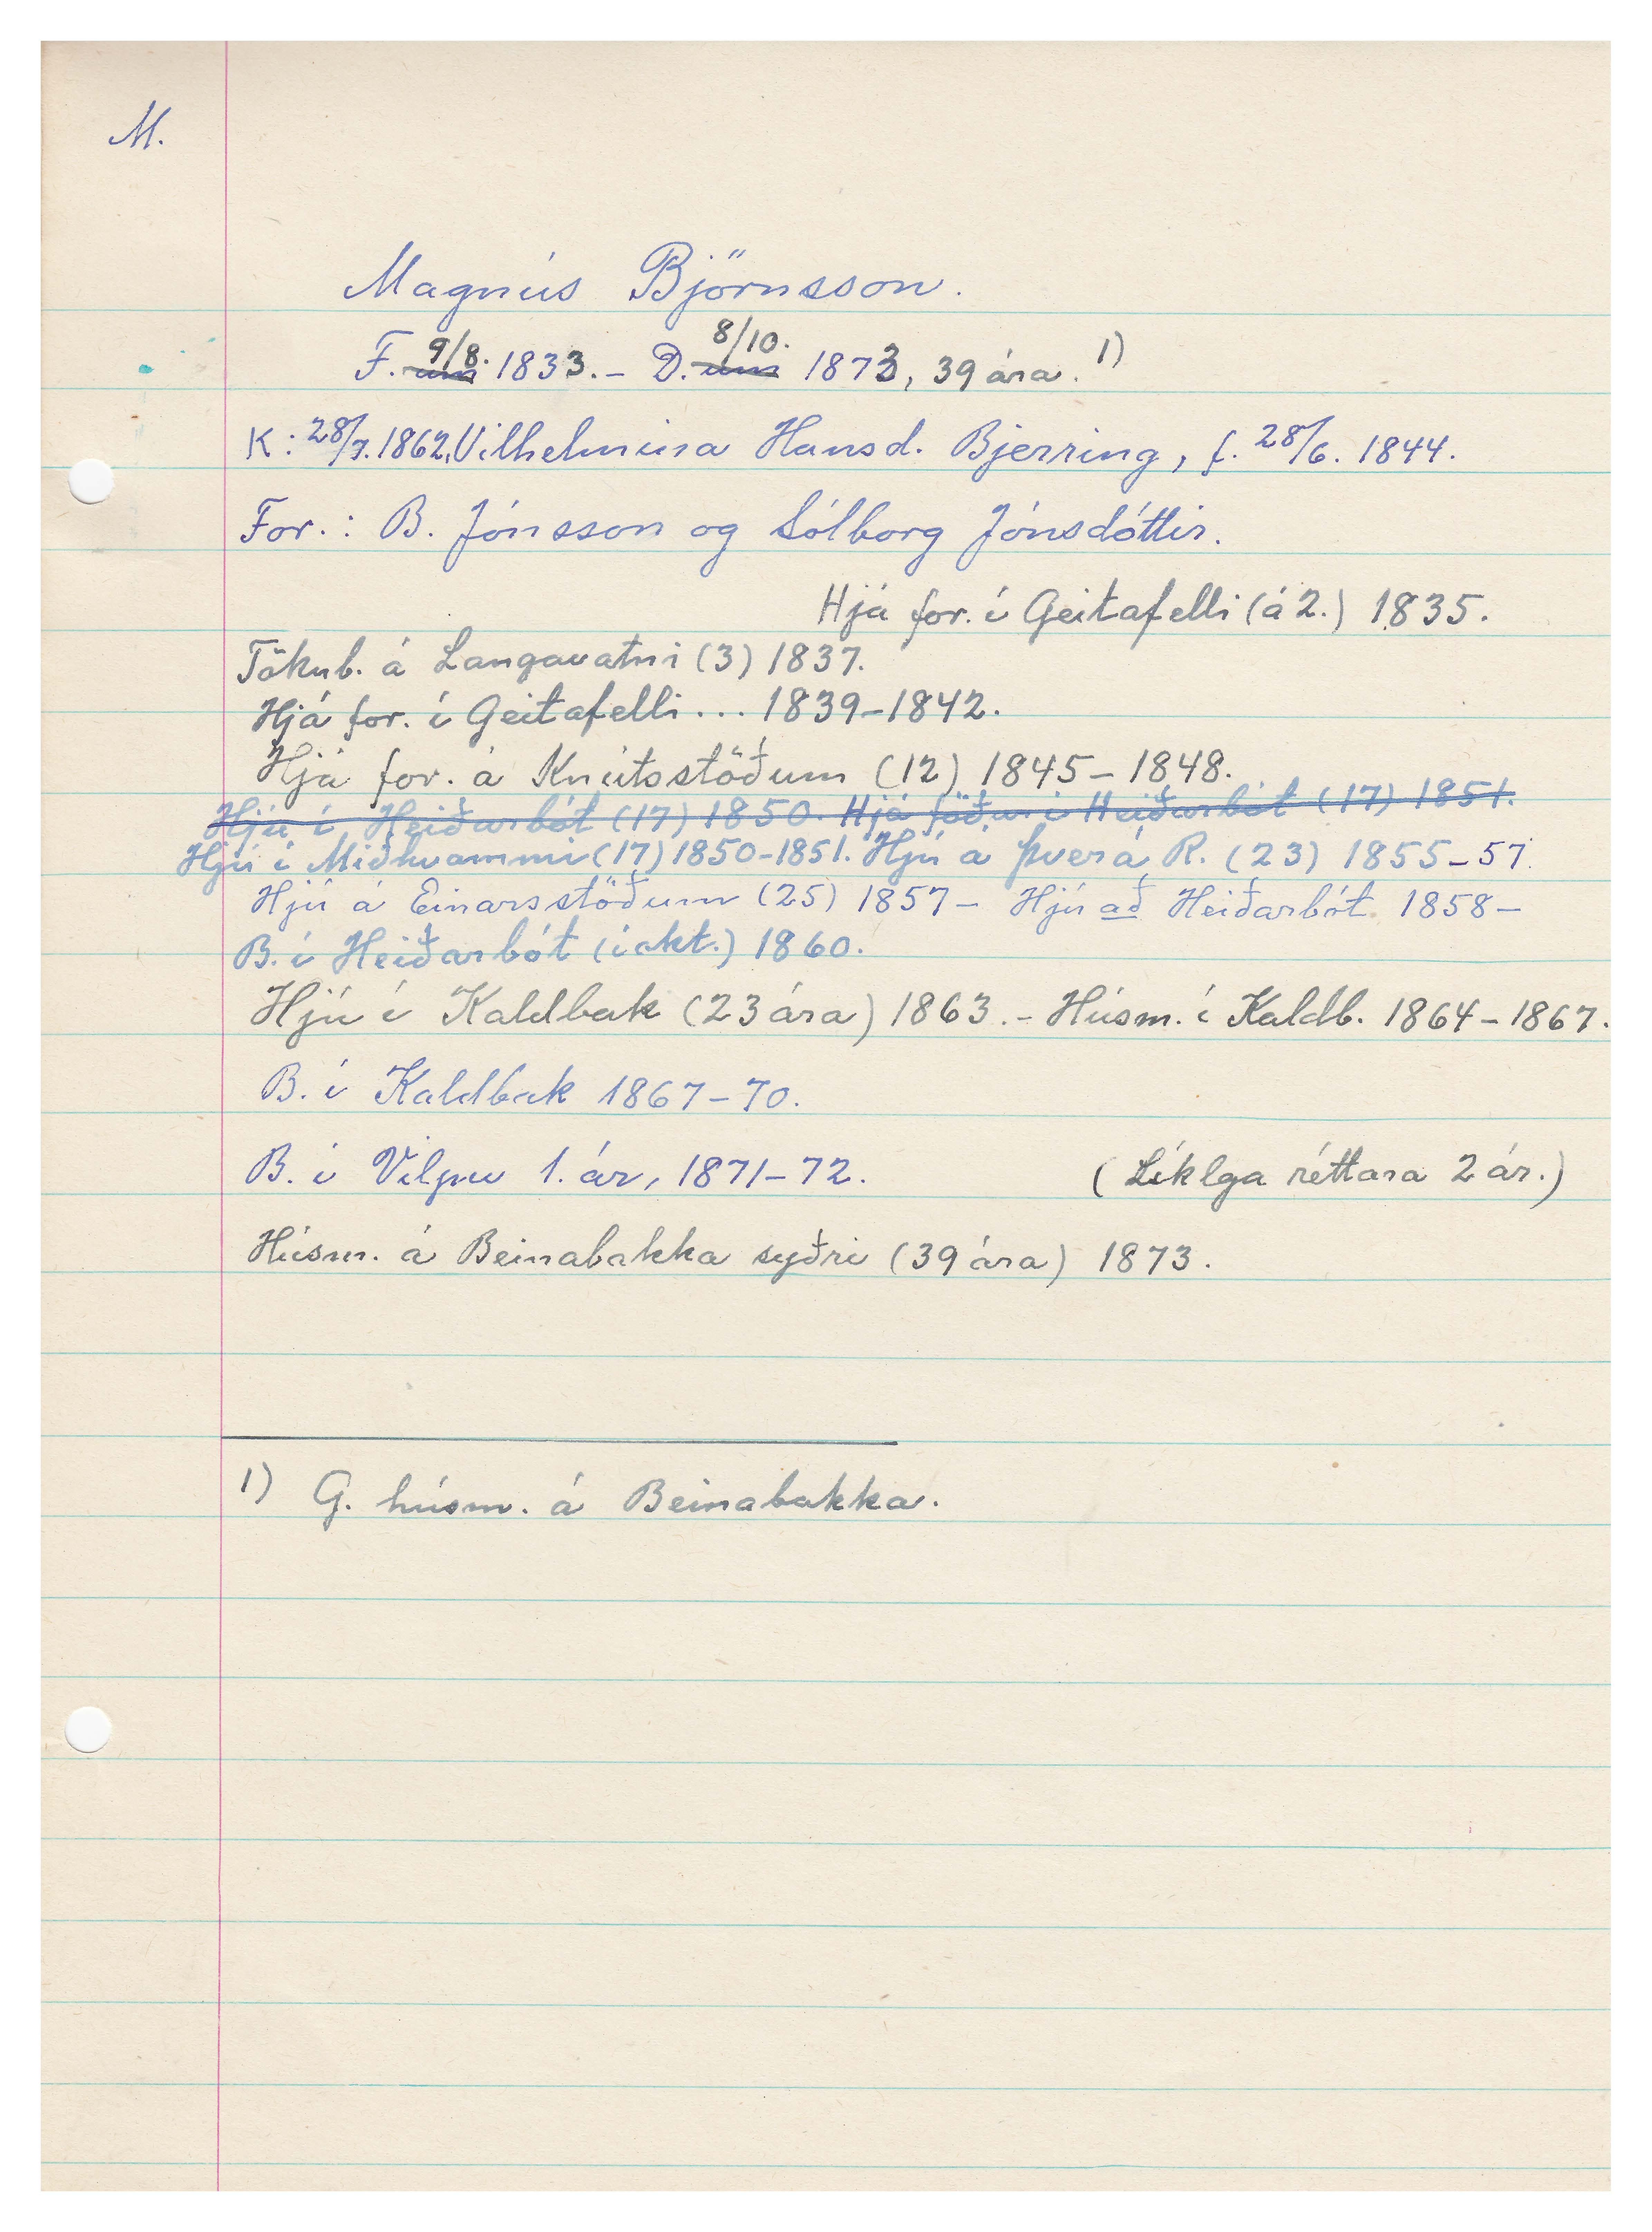 M.
Magnús Björnsson.
F. 9/8. 1833. – D. 8/10. 1873, 39 ára. 1)
K: 28/7. 1862, Vilhelmina Hansd. Bjerring, f. 28/6. 1844.
For.: B. Jónsson og Sólborg Jónsdóttir.
Hjá for. í Geitafelli (á 2.) 1835.
Tökub. á Langavatni (3) 1837.
Hjá for. í Geitafelli... 1839–1842.
Hjá for. á Knútsstöðum (12) 1845–1848.
Hjú í Heiðarbót (17) 1850. Hjá föður í Heiðarbót (17) 1851.
Hjú í Miðhvammi (17) 1850–1851. Hjú á Þverá, R. (23) 1855–57.
Hjú á Einarsstöðum (25) 1857– Hjú að Heiðarbót 1858–
B. í Heiðarbót (íakt.) 1860.
Hjú í Kaldbak (23 ára) 1863. – Húsm. í Kaldb. 1864–1867.
B. í Kaldbak 1867–70.
B. í Vilpu 1. ár, 1871–72. (Líklga réttara 2 ár.)
Húsm. á Beinabakka syðri (39 ára) 1873.
1) G. húsm. á Beinabakka.